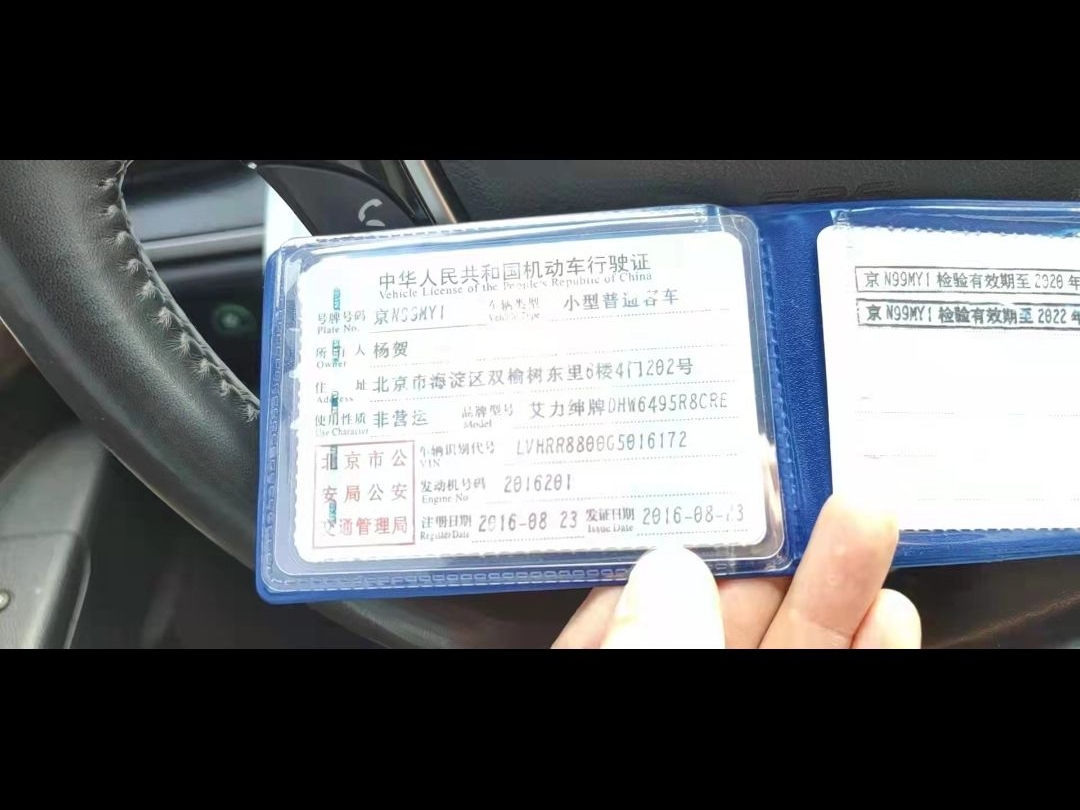 中华人民共和国机动车行驶证
Vehicle License of the People's Republic of China
号牌号码 京N99MY1 车辆类型 小型普通客车
Plate No. Vehicle Type
所有人 杨贺
Owner
住址 北京市海淀区双榆树东里6楼4门202号
Address
使用性质 非营运 品牌型号 艾力绅牌DHW6495R8CRE
Use Character Model
北京市公 车辆识别代号 LVHRR8800G5016172
VIN
安局公安 发动机号码 2016201
Engine No.
交通管理局 注册日期 2016-08 23 发证日期 2016-08-23
Register Date Issue Date
京N99MY1 检验有效期至 2020 年
京N99MY1 检验有效期至 2022 年
SRS